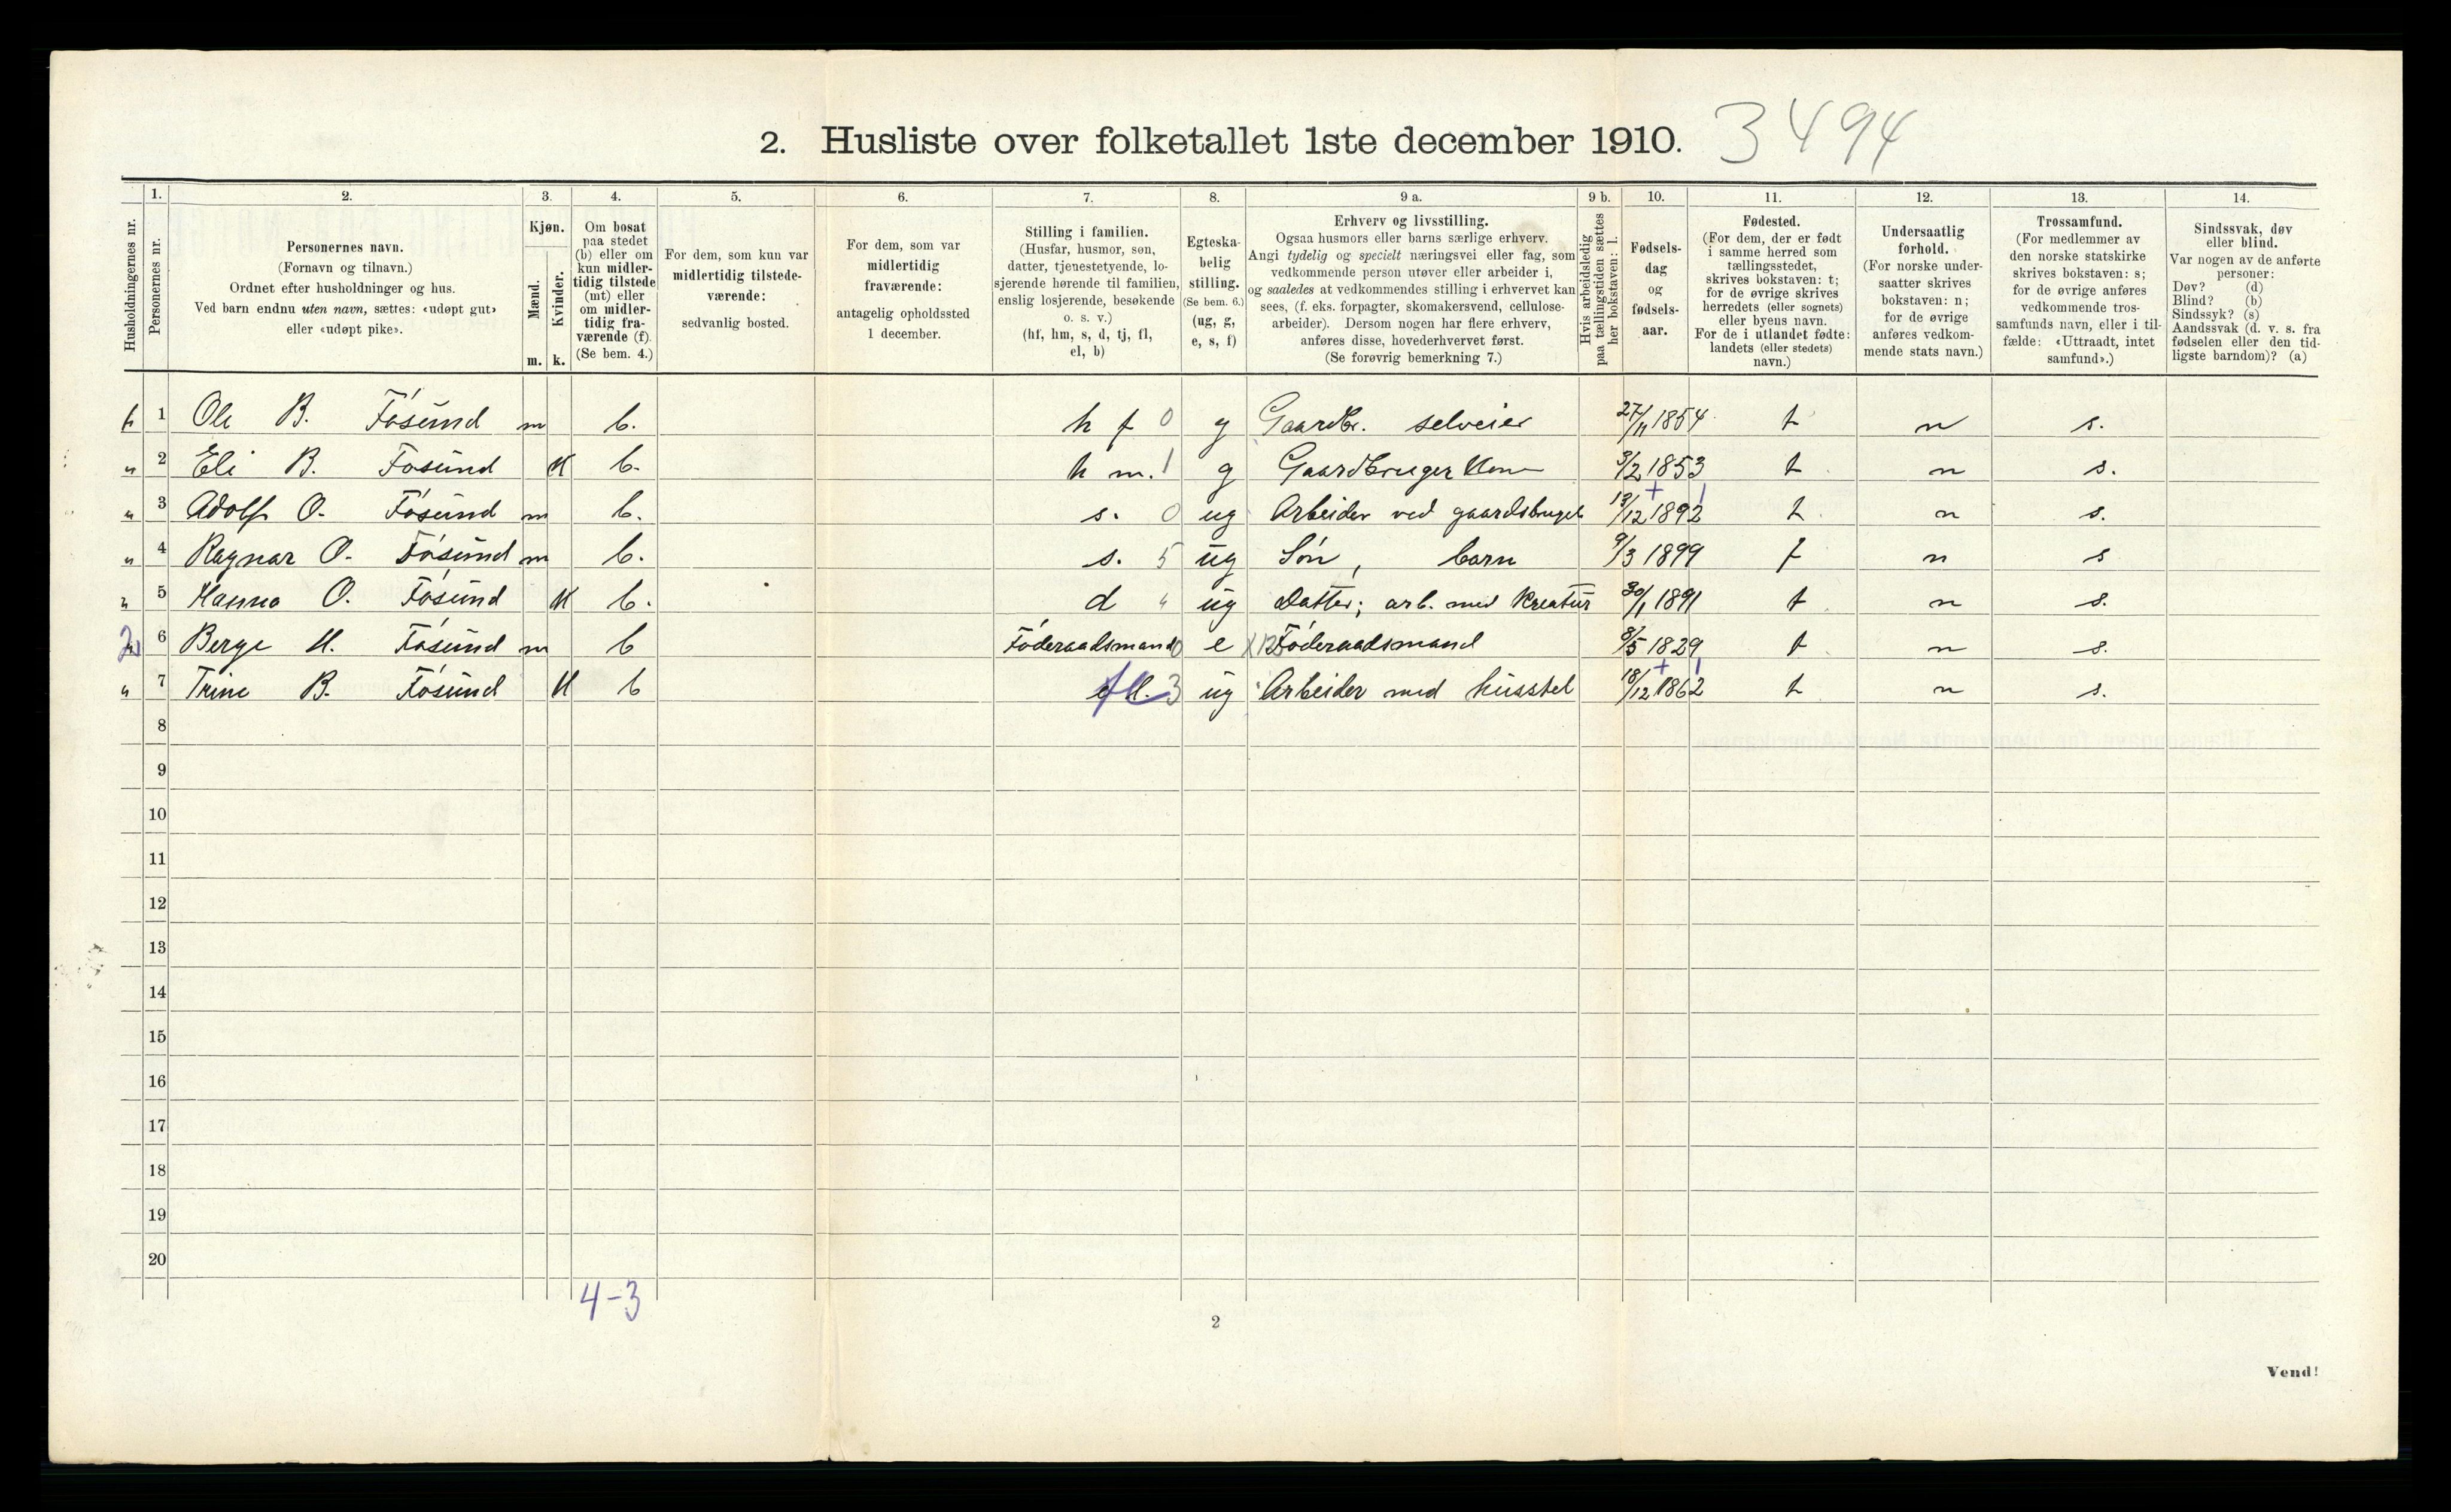 2. Husliste over folketallet 1ste december 1910. 3494
Husholdningernes nr.
1. Personernes nr.
2. Personernes navn. (Fornavn og tilnavn.) Ordnet efter husholdninger og hus. Ved barn endnu uten navn, sættes: «udøpt gut» eller «udøpt pike».
3. Kjøn. Mænd. m. Kvinder. k.
4. Om bosat paa stedet (b) eller om kun midlertidig tilstede (mt) eller om midlertidig fraværende (f). (Se bem. 4.)
5. For dem, som kun var midlertidig tilstedeværende: sedvanlig bosted.
6. For dem, som var midlertidig fraværende: antagelig opholdssted 1 december.
7. Stilling i familien. (Husfar, husmor, søn, datter, tjenestetyende, losjerende hørende til familien, enslig losjerende, besøkende o. s. v.) (hf, hm, s, d, tj, fl, el, b)
8. Egteskabelig stilling. (Se bem. 6.) (ug, g, e, s, f)
9 a. Erhverv og livsstilling. Ogsaa husmors eller barns særlige erhverv. Angi tydelig og specielt næringsvei eller fag, som vedkommende person utøver eller arbeider i, og saaledes at vedkommendes stilling i erhvervet kan sees, (f. eks. forpagter, skomakersvend, cellulosearbeider). Dersom nogen har flere erhverv, anføres disse, hovederhvervet først. (Se forøvrig bemerkning 7.)
9 b. Hvis arbeidsledig paa tællingstiden sættes her bokstaven: l.
10. Fødselsdag og fødselsaar.
11. Fødested. (For dem, der er født i samme herred som tællingsstedet, skrives bokstaven: t; for de øvrige skrives herredets (eller sognets) eller byens navn. For de i utlandet fødte: landets (eller stedets) navn.)
12. Undersaatlig forhold. (For norske undersaatter skrives bokstaven: n; for de øvrige anføres vedkommende stats navn.)
13. Trossamfund. (For medlemmer av den norske statskirke skrives bokstaven: s; for de øvrige anføres vedkommende trossamfunds navn, eller i tilfælde: «Uttraadt, intet samfund».)
14. Sindssvak, døv eller blind. Var nogen av de anførte personer: Døv? (d) Blind? (b) Sindssyk? (s) Aandssvak (d. v. s. fra fødselen eller den tidligste barndom)? (a)
1 Ole B. Fösund m b. h f 0 g Gaardbr. selveier 27/11 1854 t n s.
" 2 Eli B. Fosund K b. h m. 1 g Gaardbruger Kone 3/2 1853 t n s.
" 3 Adolf O. Fösund m b. s. 0 ug Arbeider ved gaardsbruget 13/12 1892 t n s.
" 4 Ragnar O. Fösund m b. s. 5 ug Sön, barn 9/3 1899 t n s
" 5 Hanna O. Fösund K b. d " ug Datter; arb. med Kreatur 30/1 1891 t n s.
2 6 Berge H. Fösund m b Föderaadsmand 0 e Föderaadsmand 8/5 1829 t n s.
" 7 Trine B. Fösund K b fl. 3 ug Arbeider med husstel 18/12 1862 t n s.
8
9
10
11
12
13
14
15
16
17
18
19
20
4-3
2
Vend!